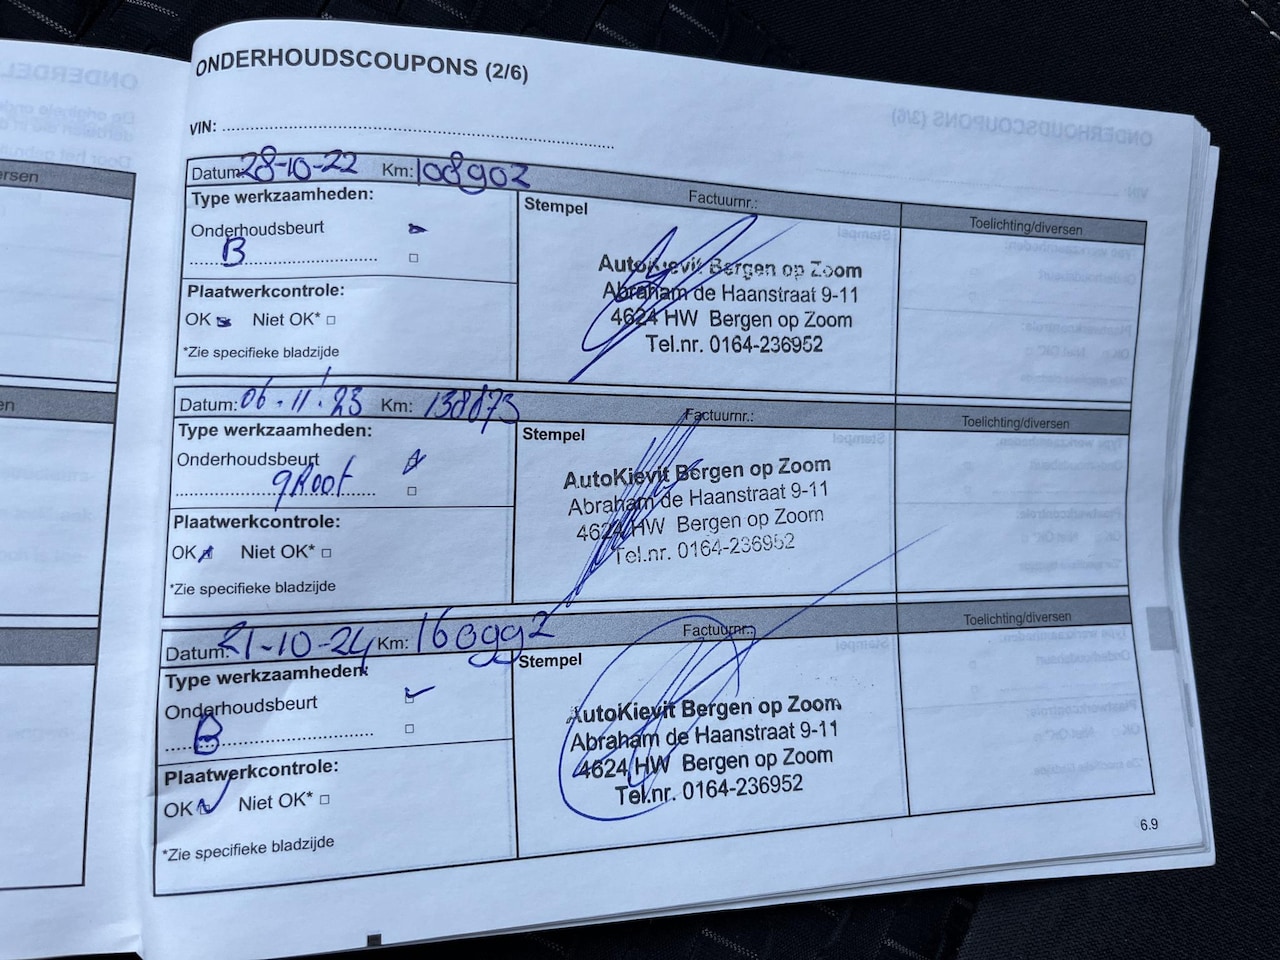 ONDERHOUDSCOUPONS (2/6)
VIN:
Datum: 28-10-22 Km: 108902
Type werkzaamheden:
Onderhoudsbeurt
B
Plaatwerkcontrole:
OK Niet OK*
*Zie specifieke bladzijde
Factuurnr.:
Stempel
AutoKievit Bergen op Zoom
Abraham de Haanstraat 9-11
4624 HW Bergen op Zoom
Tel.nr. 0164-236952
Toelichting/diversen
Datum: 06.11.'23 Km: 138873
Type werkzaamheden:
Onderhoudsbeurt
groot
Plaatwerkcontrole:
OK Niet OK*
*Zie specifieke bladzijde
Factuurnr.:
Stempel
AutoKievit Bergen op Zoom
Abraham de Haanstraat 9-11
4624 HW Bergen op Zoom
Tel.nr. 0164-236952
Toelichting/diversen
Datum: 21-10-24 Km: 160992
Type werkzaamheden:
Onderhoudsbeurt
B
Plaatwerkcontrole:
OK Niet OK*
*Zie specifieke bladzijde
Factuurnr.:
Stempel
AutoKievit Bergen op Zoom
Abraham de Haanstraat 9-11
4624 HW Bergen op Zoom
Tel.nr. 0164-236952
Toelichting/diversen
6.9